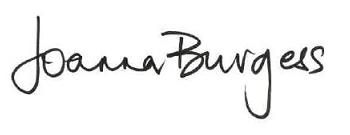 Joanna Burgess